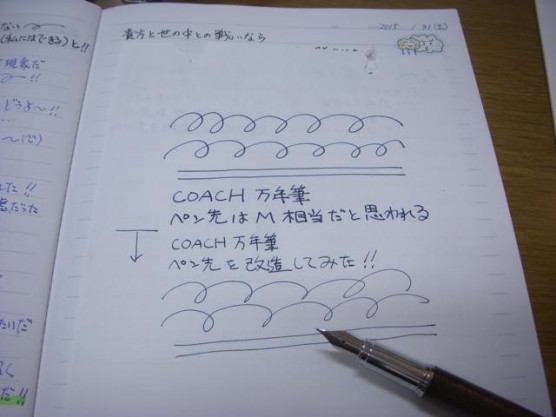 ない
(私にはできる)と!!
現象だ
!!
どうよ〜!!
〜(心)
た!!
だった
たいだ
く
だ!!
2015 1/31(土)
貴方と世の中との戦いなら
COACH 万年筆
ペン先は M 相当だと思われる
COACH 万年筆
ペン先を改造してみた!!